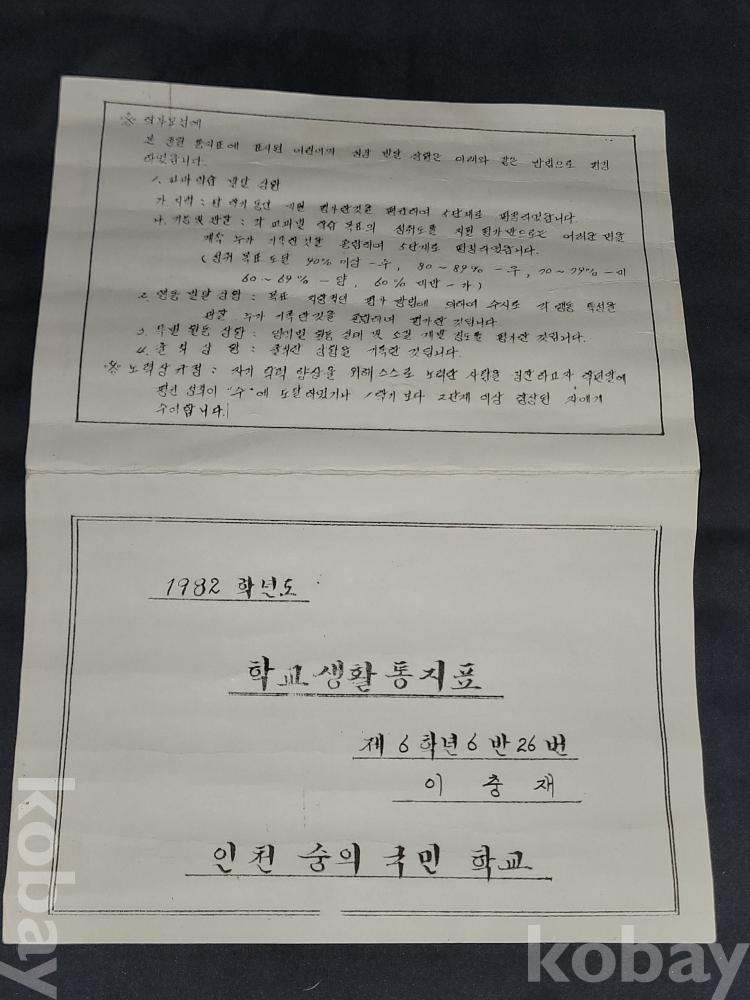 ※ 학부모님께
본 생활 통지표에 표시된 어린이의 성장 발달 상황은 아래와 같은 방법으로 평정
하였습니다.
1. 교과학습 발달 상황
가. 지력 : 학기 동안 지필 평가한것을 평균하여 5단계로 평정하였습니다.
나. 기능 및 관찰 : 각 교과별 학습 목표의 성취도를 지필 평가만으로는 어려운 면을
계속 누가 기록한 것을 종합하여 5단계로 평정하였습니다.
(성취 목표 도달 90% 이상 - 수, 80 ~ 89% - 우, 70 ~ 79% - 미
60 ~ 69% - 양, 60% 미만 - 가)
2. 행동 발달 상황 : 목표 지향적인 평가 방법에 의하여 수시로 각 행동 특성을
관찰 누가 기록한 것을 종합하여 평가한 것입니다.
3. 특별 활동 상황 : 영역별 활동 실태 및 소질 계발 정도를 평가한 것입니다.
4. 출석 상황 : 출석한 상황을 기록한 것입니다.
※ 노력상 규정 : 자기 학력 향상을 위해 스스로 노력한 사람을 칭찬하고자 학년말에
평균 성적이 "수"에 도달하였거나 1학기보다 2단계 이상 향상된 자에게
수여합니다.
1982 학년도
학교생활통지표
제 6 학년 6 반 26 번
이 충 재
인천 숭의 국민 학교
kobay
kobay